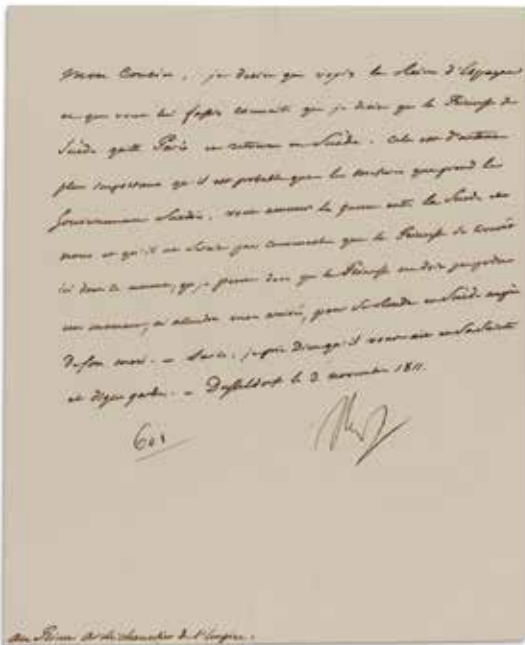 Mon Cousin, je desire que voyiez la Reine d'Espagne
et que vous lui fassiez connaitre que je desire que la Princesse de
Suède quitte Paris et retourne en Suède. Cela est d'autant
plus important qu'il est probable que les mesures que prend le
Gouvernement Suédois, vont amener la guerre entre la Suède et
nous et qu'il ne serait pas convenable que la Princesse se trouvât
ici dans ce moment, que je pense donc que la Princesse ne doit pas perdre
un moment, ni attendre mon arrivée, pour se rendre en Suède auprès
de son mari. Sur ce, je prie Dieu qu'il vous ait en sa sainte
et digne garde. Dusseldorf le 2 novembre 1811.
601
Au Prince Archichancelier de l'Empire.